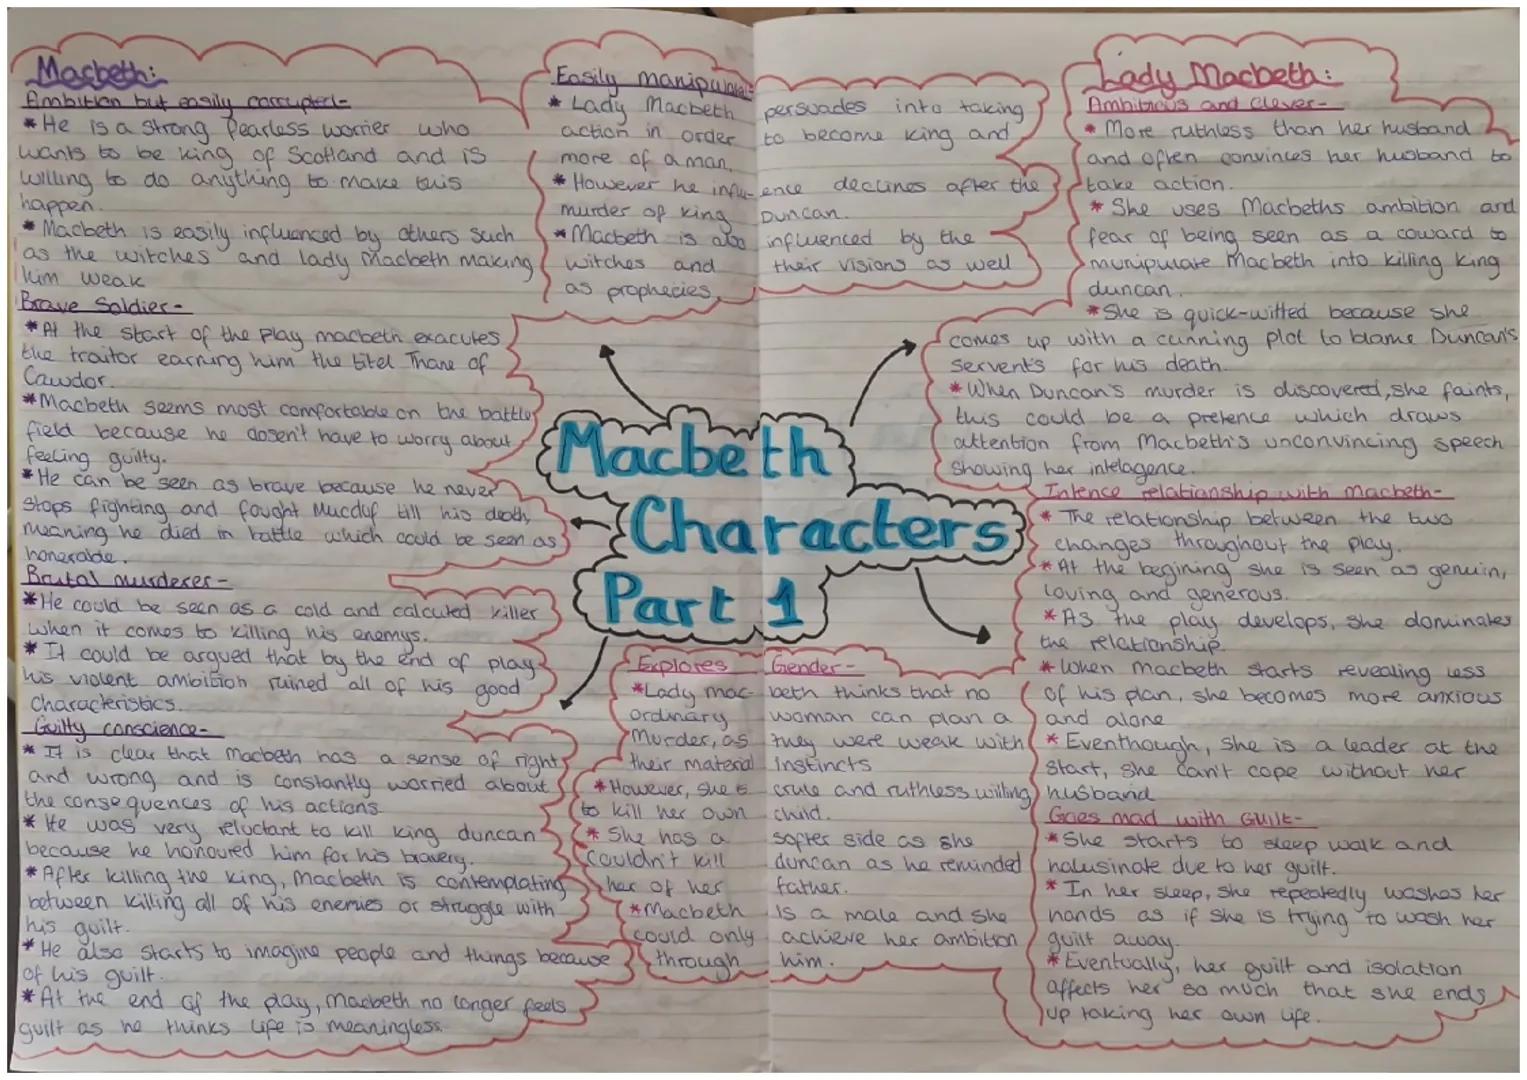 Macbeth:
Ambition but easily corrupted-
* He is a strong fearless worrier who
wants to be king of Scotland and is
willing to do anything to make this
happen.
* Macbeth is easily influenced by others such
as the witches and lady Macbeth making
him weak
Brave Soldier-
* At the start of the play macbeth exacutes
the traitor earning him the titel Thane of
Cawdor.
* Macbeth seems most comfortable on the battle
field because he dosen't have to worry about
feeling guilty.
* He can be seen as brave because he never
stops fighting and fought Macduf till his death,
meaning he died in battle which could be seen as
honerable.
Brutal murderer-
* He could be seen as a cold and calcuted killer
when it comes to killing his enemys.
* It could be argued that by the end of play
his violent ambition ruined all of his good
characteristics.
Guilty conscience-
* It is clear that macbeth has a sense of right
and wrong and is constantly worried about
the consequences of his actions.
* He was very reluctant to kill king duncan
because he honoured him for his bravery.
* After killing the king, Macbeth is contemplating
between killing all of his enemies or struggle with
his guilt.
* He also starts to imagine people and things because
of his guilt.
* At the end of the play, macbeth no longer feels
guilt as he thinks life is meaningless.
Easily manipulated-
* Lady Macbeth persuades into taking
action in order to become king and
more of a man.
* However he influence declines after the
murder of king Duncan.
* Macbeth is also influenced by the
witches and their visions as well
as prophecies.
Macbeth
Characters
Part 1
Explores Gender-
* Lady macbeth thinks that no
ordinary woman can plan a
Murder, as they were weak with
their material instincts
* However, she is crule and ruthless willing
to kill her own child.
* She has a softer side as she
couldn't kill duncan as he reminded
her of her father.
* Macbeth is a male and she
could only achieve her ambition
through him.
Lady Macbeth:
Ambitious and clever-
* More ruthless than her husband
and often convinces her husband to
take action.
* She uses Macbeths ambition and
fear of being seen as a coward to
munipulate Macbeth into killing king
duncan.
* She is quick-witted because she
comes up with a cunning plot to blame Duncan's
servent's for his death.
* When Duncan's murder is discovered, she faints,
this could be a pretence which draws
attention from Macbeth's unconvincing speech
showing her intelagence.
Intence relationship with macbeth-
* The relationship between the two
changes throughout the play.
* At the begining she is seen as genuin,
loving and generous.
* As the play develops, she dominates
the relationship.
* When macbeth starts revealing less
of his plan, she becomes more anxious
and alone
* Eventhough, she is a leader at the
start, she can't cope without her
husband
Goes mad with Guilt-
* She starts to sleep walk and
halusinate due to her guilt.
* In her sleep, she repeatedly washes her
hands as if she is trying to wash her
guilt away.
* Eventually, her guilt and isolation
affects her so much that she ends
up taking her own life.